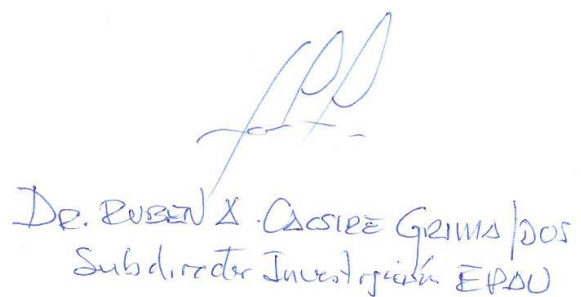 DR. RUBEN X. CACSIRE GRIMALDOS
Subdirector Investigación EPAU